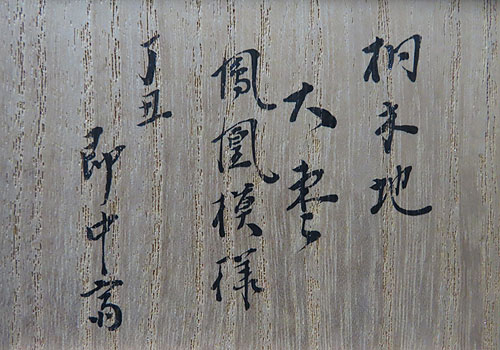 桐木地
大棗
鳳凰模様
丁丑
即中斎